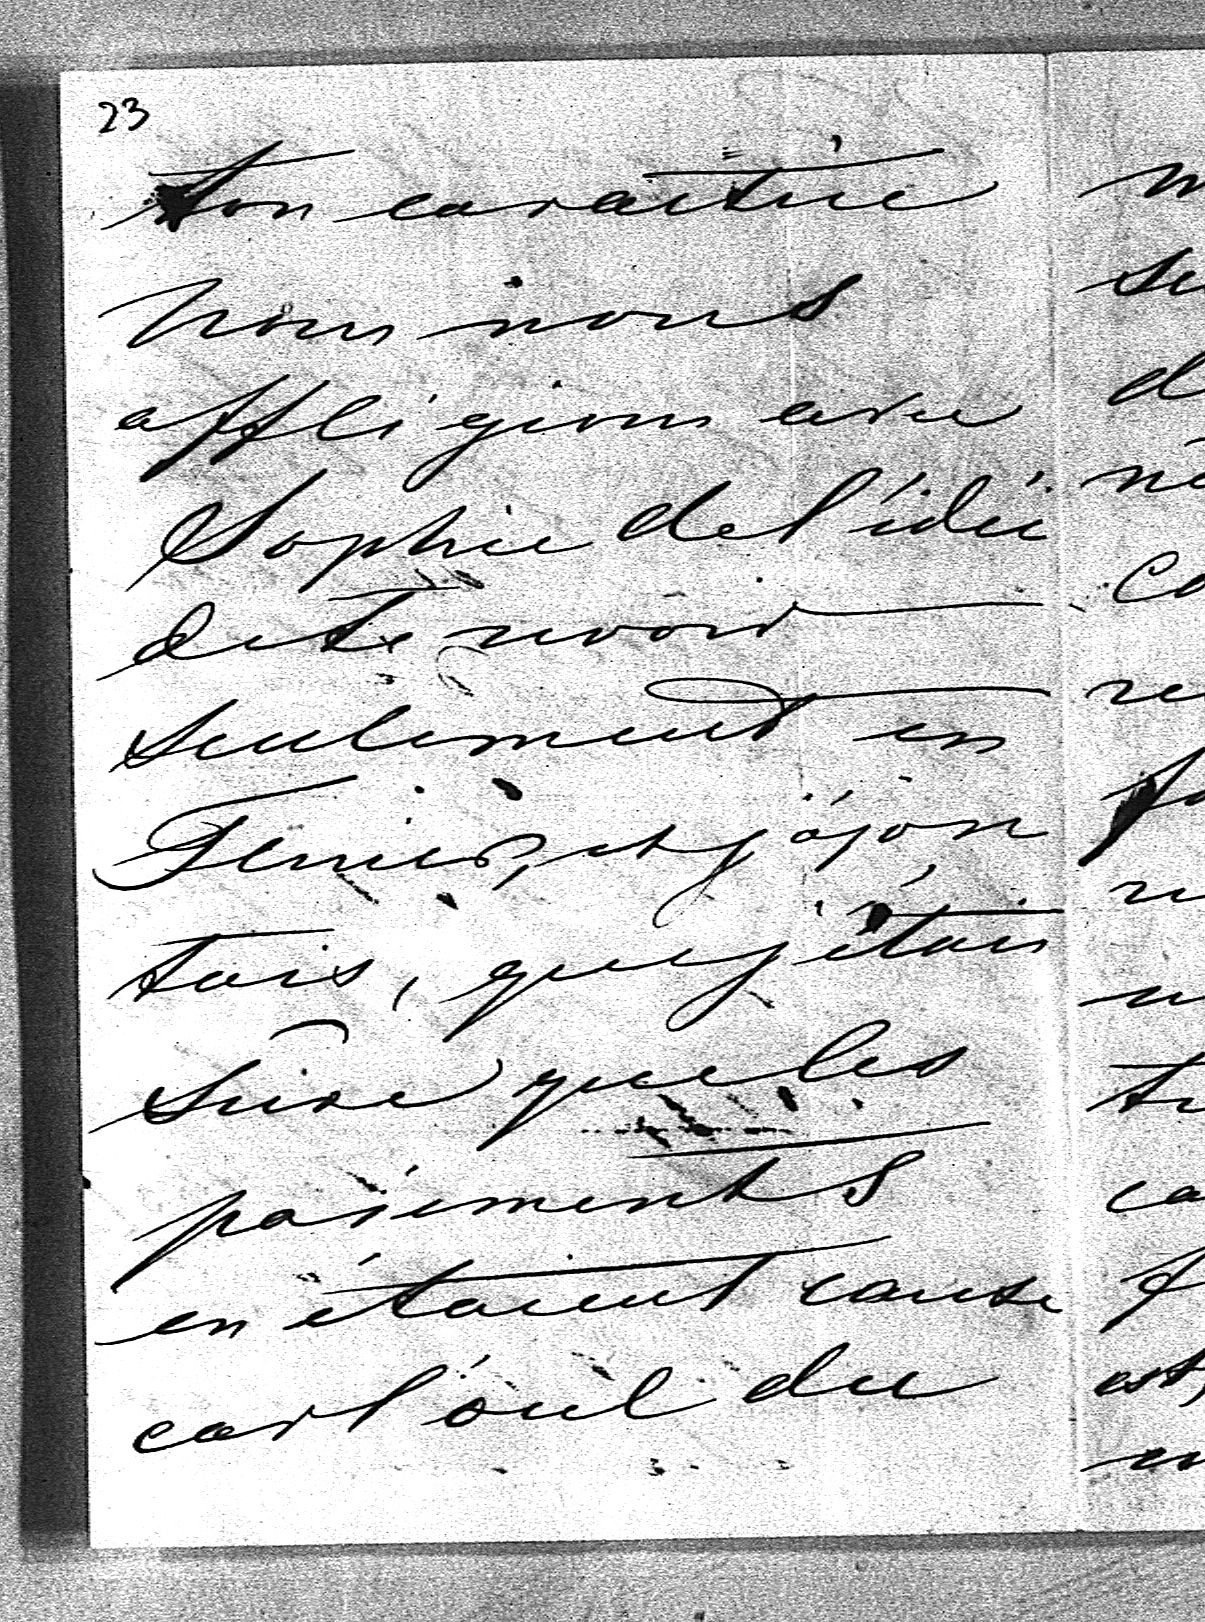 23
ton caractère
Nous nous
affligions avec
Sophie de l'idée
de te revoir
seulement en
Février, et j'ajou
tais, que j'étais
sûre que les
paiements
en étaient cause
car l'œil du